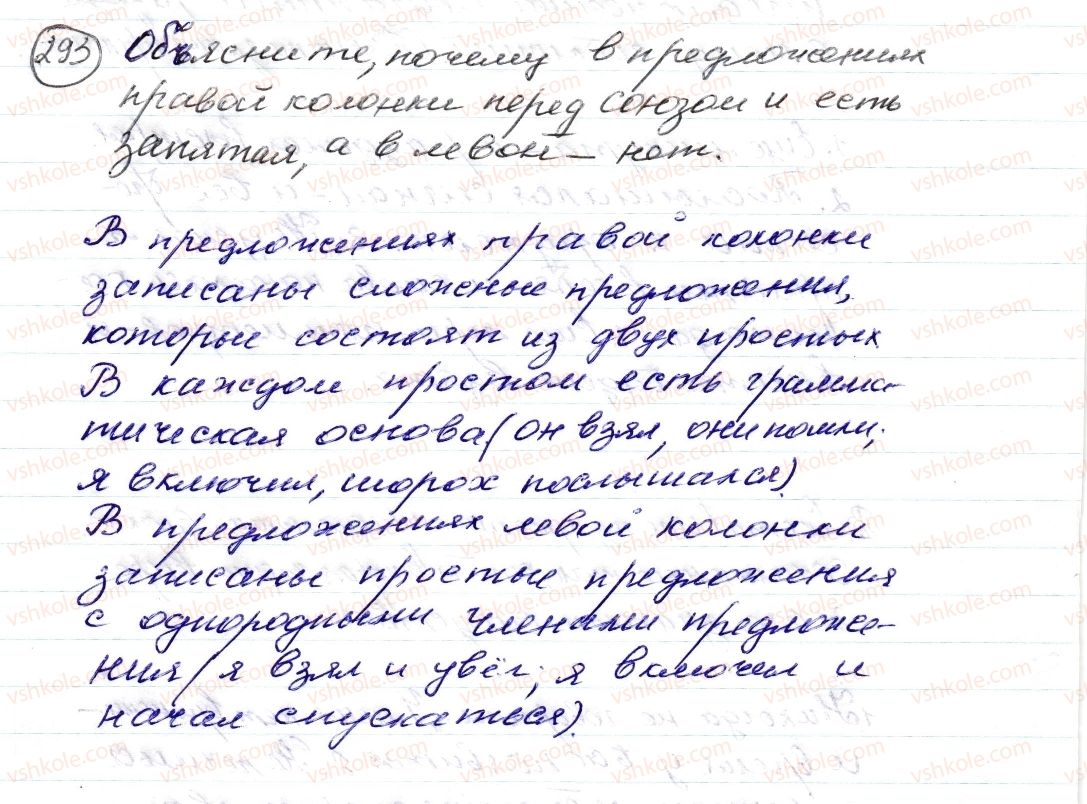 293 Объясните, почему в предложениях
правой колонки перед союзом и есть
запятая, а в левой – нет.
В предложениях правой колонки
записаны сложные предложения,
которые состоят из двух простых
В каждом простом есть грамма-
тическая основа (он взял, они пошли;
я включил, шорох послышался).
В предложениях левой колонки
записаны простые предложения
с однородными членами предложе-
ния (я взял и увёл; я включил и
начал спускаться).
vshkole.com